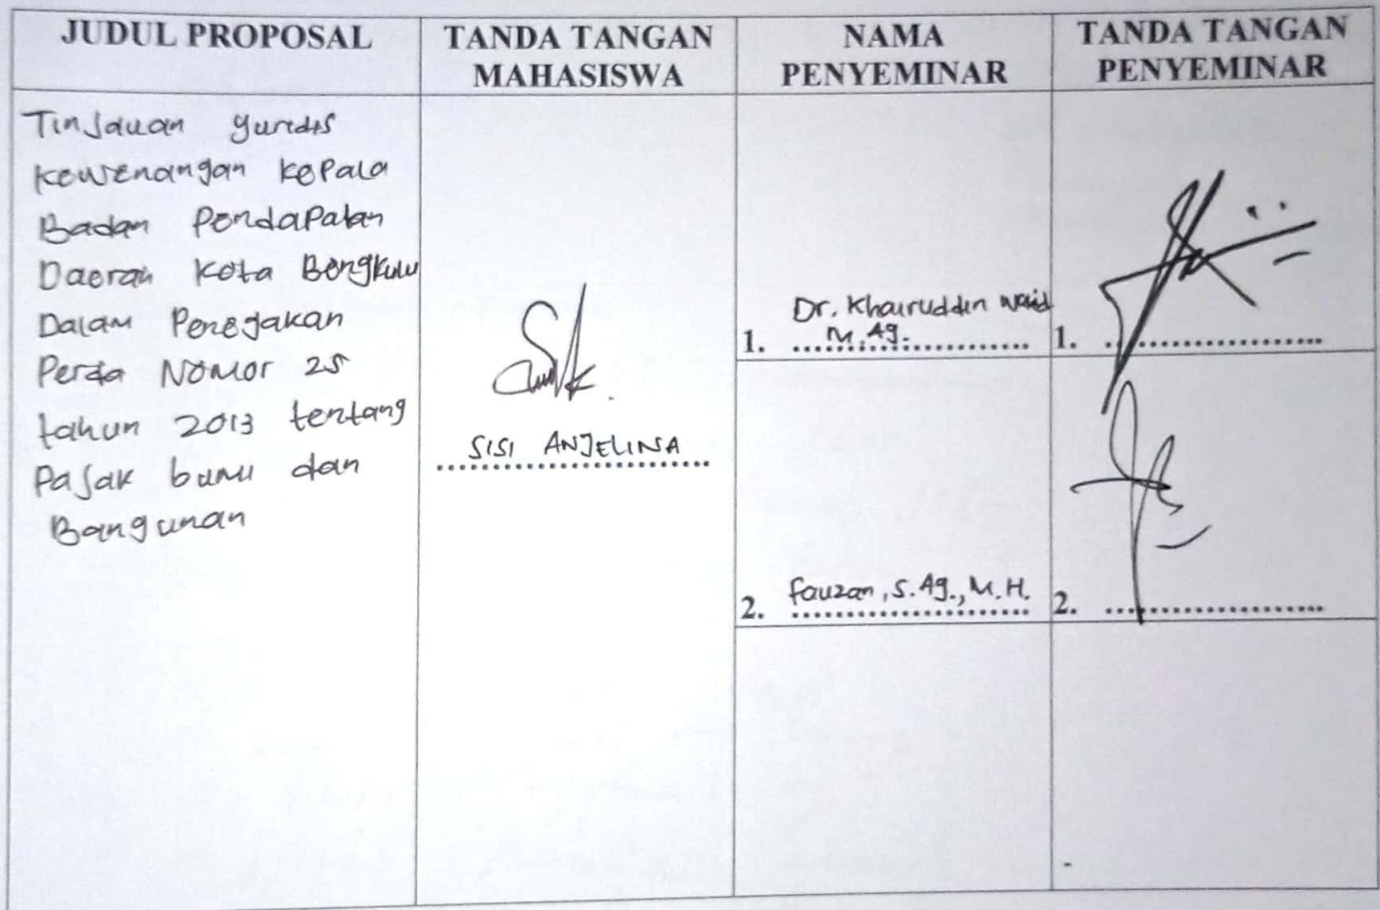 JUDUL PROPOSAL
TANDA TANGAN
MAHASISWA
NAMA
PENYEMINAR
TANDA TANGAN
PENYEMINAR
Tinjauan yuridis
kewenangan kepala
Badan Pendapatan
Daerah Kota Bengkulu
Dalam Penegakan
Perda Nomor 25
tahun 2013 tentang
Pajak bumi dan
Bangunan
SISI ANJELINA
Dr. Khairuddin Wahid
1. M.Ag.
1.
2. Fauzan, S.Ag., M.H.
2.